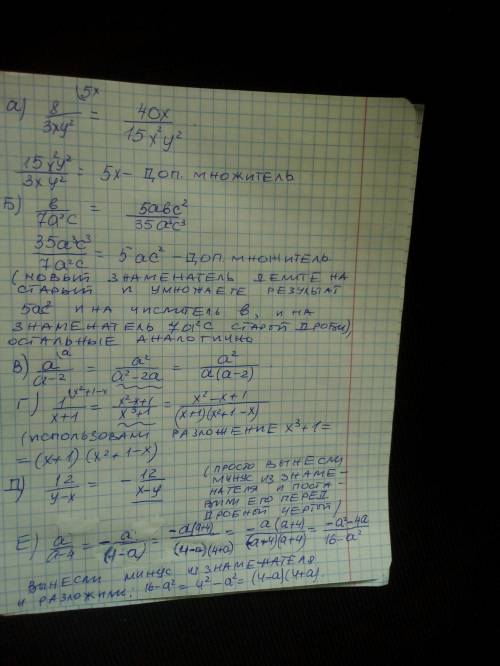 а) 8/3xy² (5x = 40x/15x²y²
15x²y²/3xy² = 5x – доп. множитель
Б) в/7a²c = 5abc²/35a³c³
35a³c³/7a²c = 5ac² – доп множитель
(новый знаменатель делите на
старый и умножаете результат
5ac² и на числитель в, и на
знаменатель 7a²c старой дроби)
остальные аналогично
В) a/a-2 (a = a²/a²-2a = a²/a(a-2)
Г) 1/x+1 (x²+1-x = x²-x+1/x³+1 = x²-x+1/(x+1)(x²+1-x)
(использовали разложение x³+1=
= (x+1)(x²+1-x)
Д) 12/y-x = - 12/x-y (просто вынесли
минус из знаме-
нателя и поста-
вили его перед
дробной чертой)
Е) a/a-4 = -a/(4-a) = -a(a+4)/(4-a)(4+a) = -a(a+4)/(a+4)(a+4) = -a²-4a/16-a²
вынесли минус из знаменателя
и разложили: 16-a² = 4²-a² = (4-a)(4+a).